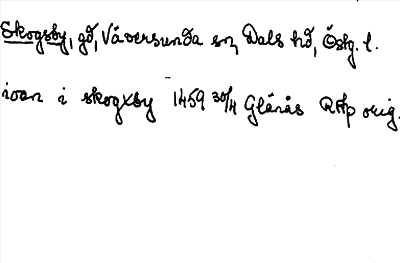 Skogsby, gd, Väversunda sn, Dals hd, Östg. l.
ioan i skogxby 1459 30/4 Glänås RAp orig.